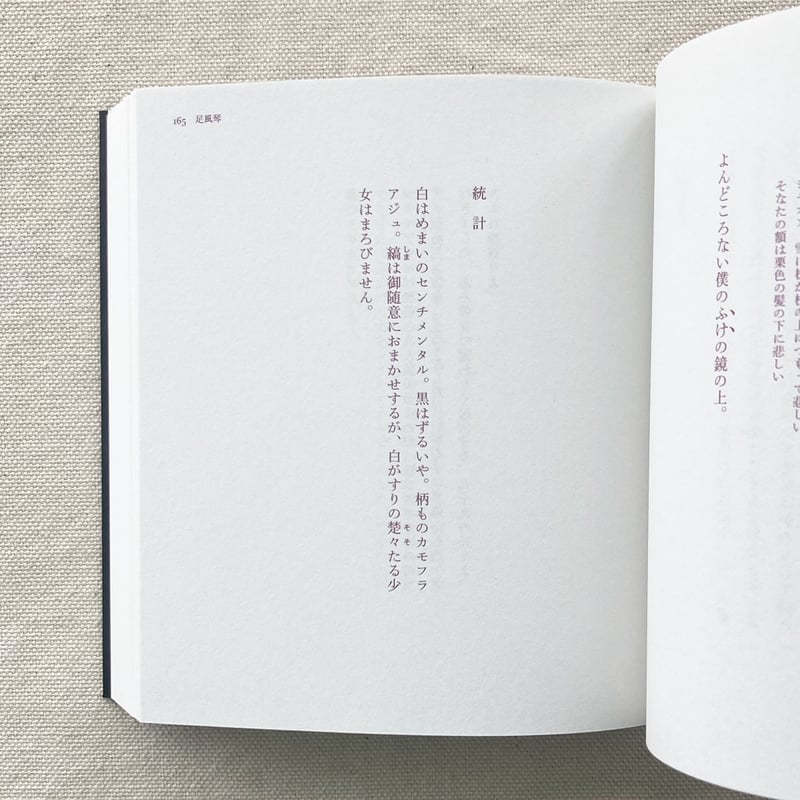 の上につもつて悲しい
そなたの額は栗色の髪の下に悲しい
よんどころない僕のふけの鏡の上。
165 足風琴
統計
白はめまいのセンチメンタル。黒はずるいや。柄ものカモフラ
しま
そそ
アジュ。縞は御随意におまかせするが、白がすりの楚々たる少
女はまろびません。